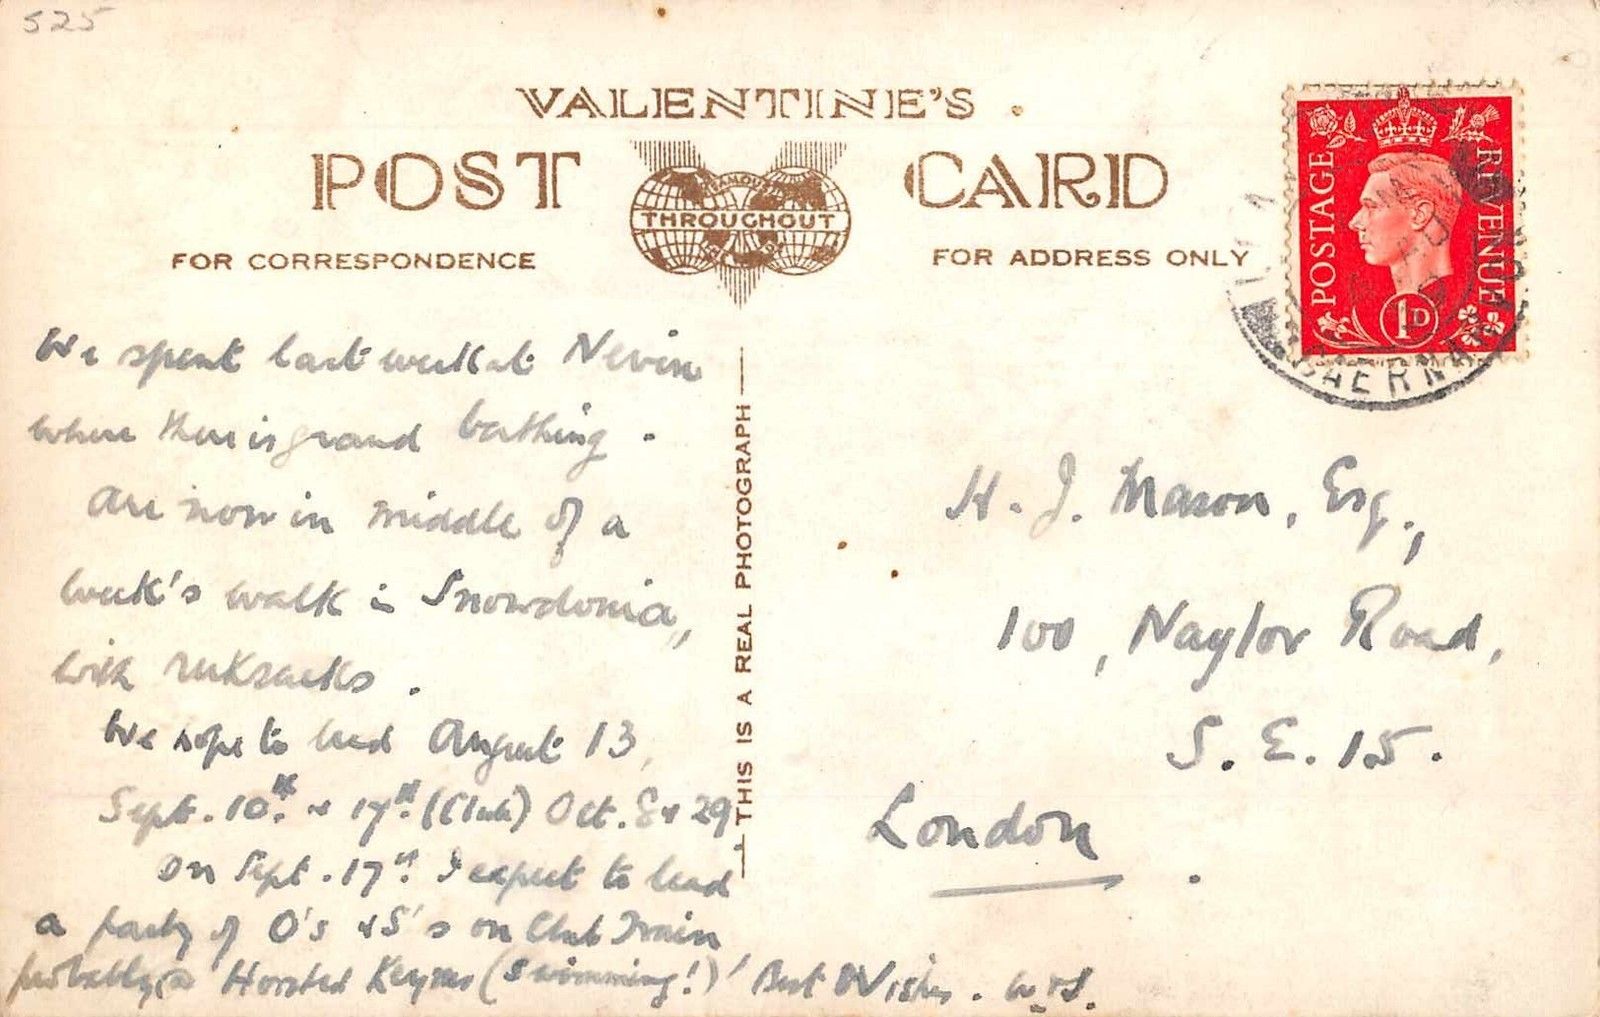 525
VALENTINE'S
POST CARD
THROUGHOUT
FOR CORRESPONDENCE
FOR ADDRESS ONLY
POSTAGE REVENUE
1D
CAERNAR
THIS IS A REAL PHOTOGRAPH
We spent last week at Nevin
where there is grand bathing.
Are now in middle of a
week's walk in Snowdonia,
with rucksacks.
We hope to lead August 13,
Sept. 10th & 17th (Club) Oct. 8 & 29.
On Sept. 17th I expect to lead
a party of O's & S's on Club Train
probably a 'Horsted Keynes (swimming!)' Best Wishes.
H. J. Mason, Esq.,
100, Naylor Road,
S.E. 15.
London.